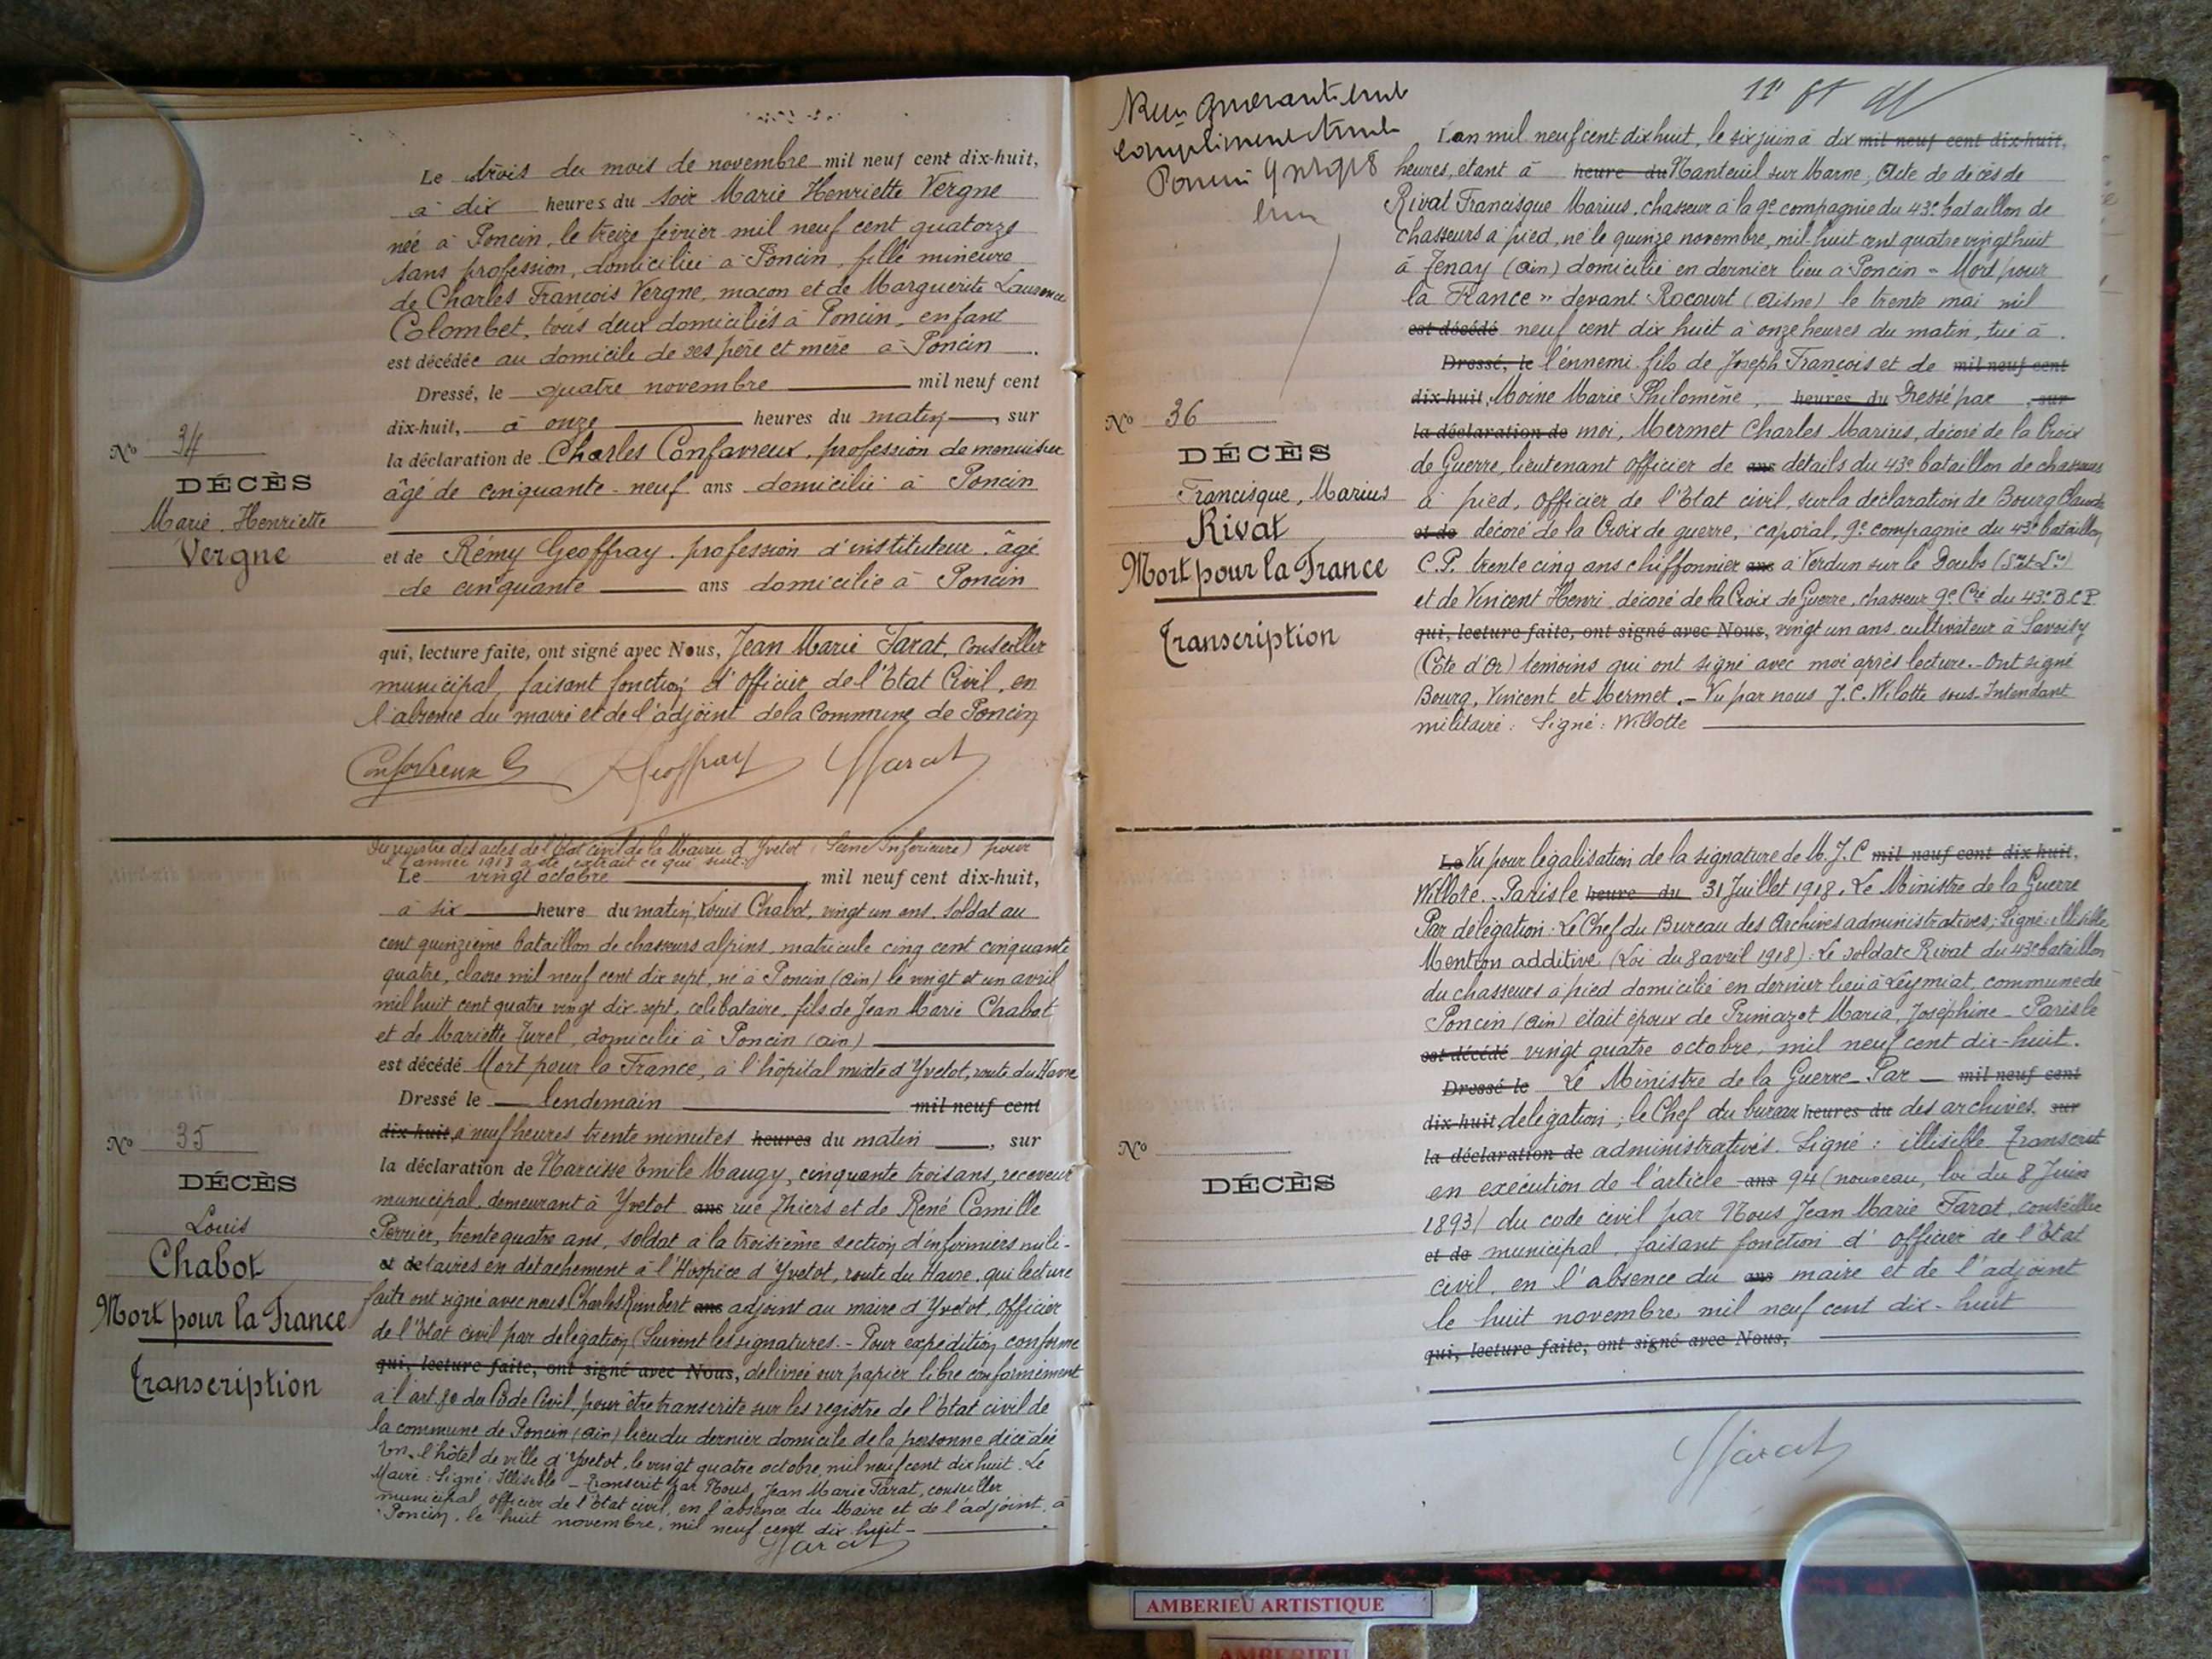 Le trois du mois de novembre mil neuf cent dix-huit,
à dix heures du soir Marie Henriette Vergne
née à Poncin, le treize février mil neuf cent quatorze
sans profession, domiciliée à Poncin, fille mineure
de Charles François Vergne, maçon et de Marguerite Laurence
Colombet, tous deux domiciliés à Poncin, enfant
est décédée au domicile de ses père et mère à Poncin
Dressé, le quatre novembre mil neuf cent
dix-huit, à onze heures du matin, sur
la déclaration de Charles Confavreux, profession de menuisier
âgé de cinquante-neuf ans domicilié à Poncin
et de Rémy Geoffray, profession d'instituteur, âgé
de cinquante ans domicilié à Poncin
qui, lecture faite, ont signé avec Nous, Jean Marie Tarat, Conseiller
municipal, faisant fonction d'officier de l'Etat Civil, en
l'absence du maire et de l'adjoint de la Commune de Poncin
Confavreux C Geoffray Tarat
No 34
DÉCÈS
Marie Henriette
Vergne
Du registre des actes de l'Etat civil de la Mairie d'Yvetot (Seine Inférieure) pour
l'année 1918 a été extrait ce qui suit:
Le vingt octobre mil neuf cent dix-huit,
à six heure du matin, Louis Chabot, vingt un ans, soldat au
cent quinzième bataillon de chasseurs alpins, matricule cinq cent cinquante
quatre, classe mil neuf cent dix sept, né à Poncin (Ain) le vingt et un avril
mil huit cent quatre vingt dix-sept, célibataire, fils de Jean Marie Chabot
et de Mariette Turel, domicilié à Poncin (Ain)
est décédé Mort pour la France, à l'hôpital mixte d'Yvetot, route du Havre
Dressé le lendemain mil neuf cent
dix-huit, à neuf heures trente minutes heures du matin, sur
la déclaration de Narcisse Emile Maugy, cinquante trois ans, receveur
municipal, demeurant à Yvetot ans rue Thiers et de René Camille
Perrier, trente quatre ans, soldat à la troisième section d'infirmiers mili-
et de taires en détachement à l'Hospice d'Yvetot, route du Havre, qui lecture
faite ont signé avec nous Charles Rimbert ans adjoint au maire d'Yvetot, officier
de l'Etat civil par délégation (Suivent les signatures. - Pour expédition conforme
qui, lecture faite, ont signé avec Nous, délivrée sur papier libre conformément
à l'art 80 du Code Civil, pour être transcrite sur les registre de l'Etat civil de
la commune de Poncin (Ain) lieu du dernier domicile de la personne décédée
En l'hôtel de ville d'Yvetot, le vingt quatre octobre, mil neuf cent dix huit. Le
Maire: Signé: Illisible - Transcrit par Nous, Jean Marie Tarat, conseiller
municipal, officier de l'Etat civil, en l'absence du Maire et de l'adjoint, à
Poncin, le huit novembre, mil neuf cent dix huit -
Tarat
No 35
DÉCÈS
Louis
Chabot
Mort pour la France
Transcription
Poncin
L'an mil neuf cent dix huit, le six juin à dix mil neuf cent dix-huit,
heures, étant à heure du Nanteuil sur Marne, Acte de décès de
Rivat Francisque Marius, chasseur à la 9e compagnie du 43e bataillon de
chasseurs à pied, né le quinze novembre, mil huit cent quatre vingt huit
à Tenay (Ain) domicilié en dernier lieu à Poncin - Mort pour
la France" devant Rocourt (Aisne) le trente mai mil
est décédé neuf cent dix huit à onze heures du matin, tué à
Dressé, le l'ennemi fils de Joseph François et de mil neuf cent
dix-huit, Moine Marie Philomène, heures du Dressé par sur
la déclaration de moi, Mermet Charles Marius, décoré de la Croix
de Guerre, lieutenant officier de ans détails du 43e bataillon de chasseurs
à pied, officier de l'Etat civil, sur la déclaration de Bourg Claude
et de décoré de la Croix de guerre, caporal, 9e compagnie du 43e bataillon
C.P. trente cinq ans chiffonnier ans à Verdun sur le Doubs (Sne et Lre)
et de Vincent Henri, décoré de la Croix de Guerre, chasseur 9e Cie du 43e B.C.P.
qui, lecture faite, ont signé avec Nous, vingt un ans cultivateur à Savoisy
(Côte d'Or) témoins qui ont signé avec moi après lecture. - Ont signé
Bourg, Vincent et Mermet. - Vu par nous J.C. Willotte sous-Intendant
militaire: Signé: Willotte
No 36
DÉCÈS
Francisque, Marius
Rivat
Mort pour la France
Transcription
Le Vu pour légalisation de la signature de M. J.C mil neuf cent dix huit,
Willote. - Paris le heure du 31 Juillet 1918, Le Ministre de la Guerre
Par délégation: Le Chef du Bureau des Archives administratives; Signé: illisible
Mention additive (Loi du 8 avril 1918): Le soldat Rivat du 43e bataillon
du chasseurs à pied domicilié en dernier lieu à Leymiat, commune de
Poncin (Ain) était époux de Primazot Maria, Joséphine - Paris le
est décédé vingt quatre octobre, mil neuf cent dix-huit.
Dressé le Le Ministre de la Guerre Par mil neuf cent
dix-huit délégation, le Chef du bureau heures du des archives sur
la déclaration de administratives. Signé: illisible Transcrit
en exécution de l'article ans 94 (nouveau, loi du 8 Juin
1893) du code civil par Nous Jean Marie Tarat, conseiller
et de municipal, faisant fonction d'officier de l'Etat
civil, en l'absence du ans maire et de l'adjoint
le huit novembre, mil neuf cent dix-huit
qui, lecture faite, ont signé avec Nous,
Tarat
No
DÉCÈS
AMBERIEU ARTISTIQUE
AMBERIEU